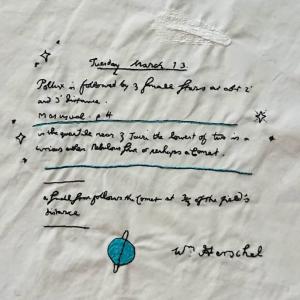 Tuesday March 13
Pollux is followed by 3 small stars at abt 2'
and 3' distance.
Mars as usual. p #
in the quartile near ζ Tauri the lowest of two is a
curious either Nebulous star or perhaps a Comet.
a small star follows the Comet at 2/3 of the field's
distance
Wm Herschel